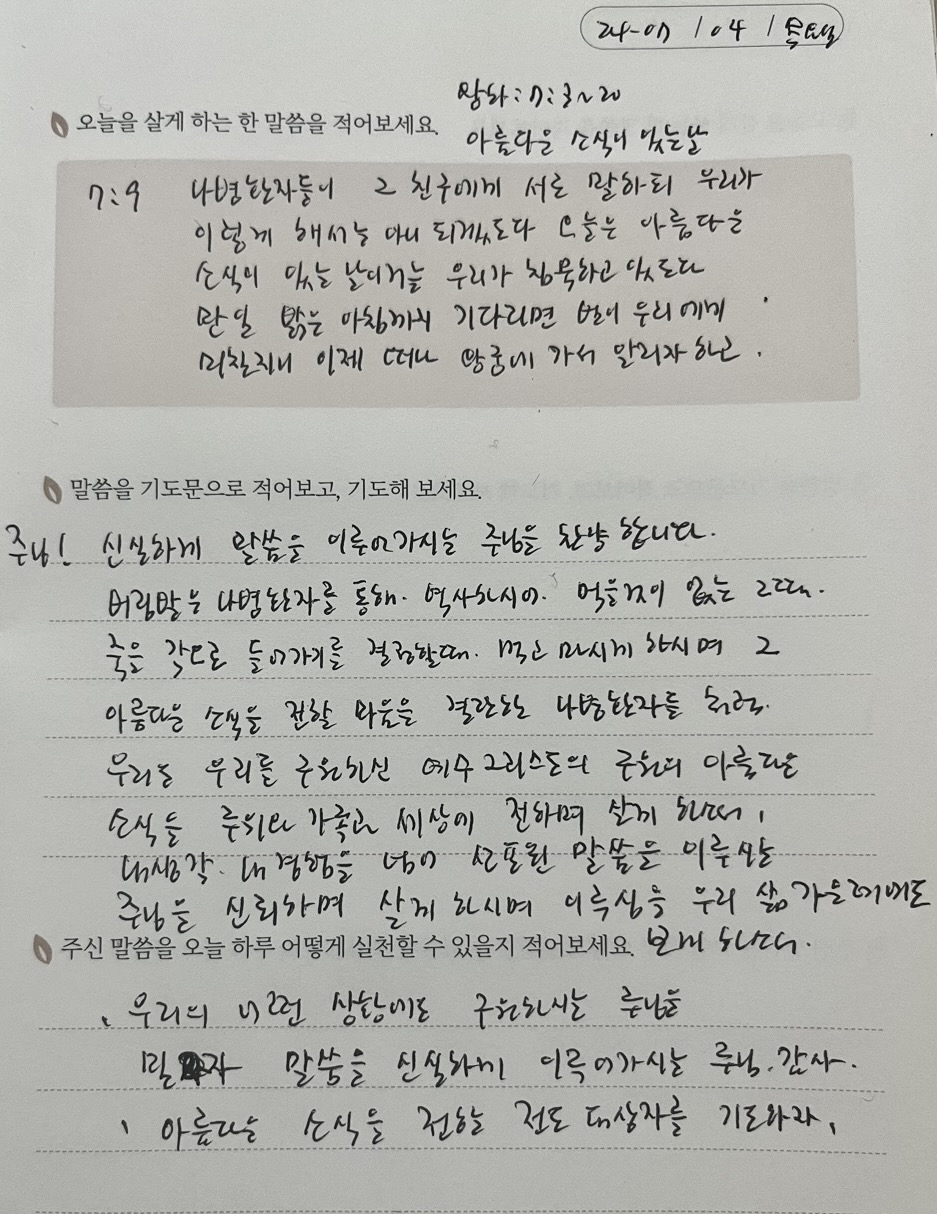 24-07 / 04 / 목요일
왕하:7:3~20
오늘을 살게 하는 한 말씀을 적어보세요.
아름다운 소식이 있는날
7:9 나병환자들이 그 친구에게 서로 말하되 우리가
이렇게 해서는 아니 되겠도다 오늘은 아름다운
소식이 있는 날이거늘 우리가 침묵하고 있도다
만일 밝은 아침까지 기다리면 벌이 우리에게
미칠지니 이제 떠나 왕궁에 가서 알리자 하고.
말씀을 기도문으로 적어보고, 기도해 보세요.
주님! 신실하게 말씀을 이루어가시는 주님을 찬양 합니다.
버림받은 나병환자를 통해. 역사하시어. 먹을것이 없는 그때.
죽을 각오로 들어가기를 결정할때. 먹고 마시게 하시며 그
아름다운 소식을 전할 마음을 결단한 나병환자를 처럼.
우리는 우리를 구원하신 예수그리스도의 구원의 아름다운
소식을 주위와 가족과 세상에 전하며 살게 하소서,
내생각. 내경험을 넘어 선포된 말씀을 이루시는
주님을 신뢰하며 살게 하시며 이루심을 우리 삶 가운데에도
보게 하소서.
주신 말씀을 오늘 하루 어떻게 실천할 수 있을지 적어보세요.
、우리의 어떤 상황에도 구원하시는 주님을
믿 자 말씀을 신실하게 이루어가시는 주님. 감사.
、아름다운 소식을 전하는 전도 대상자를 기도하자,